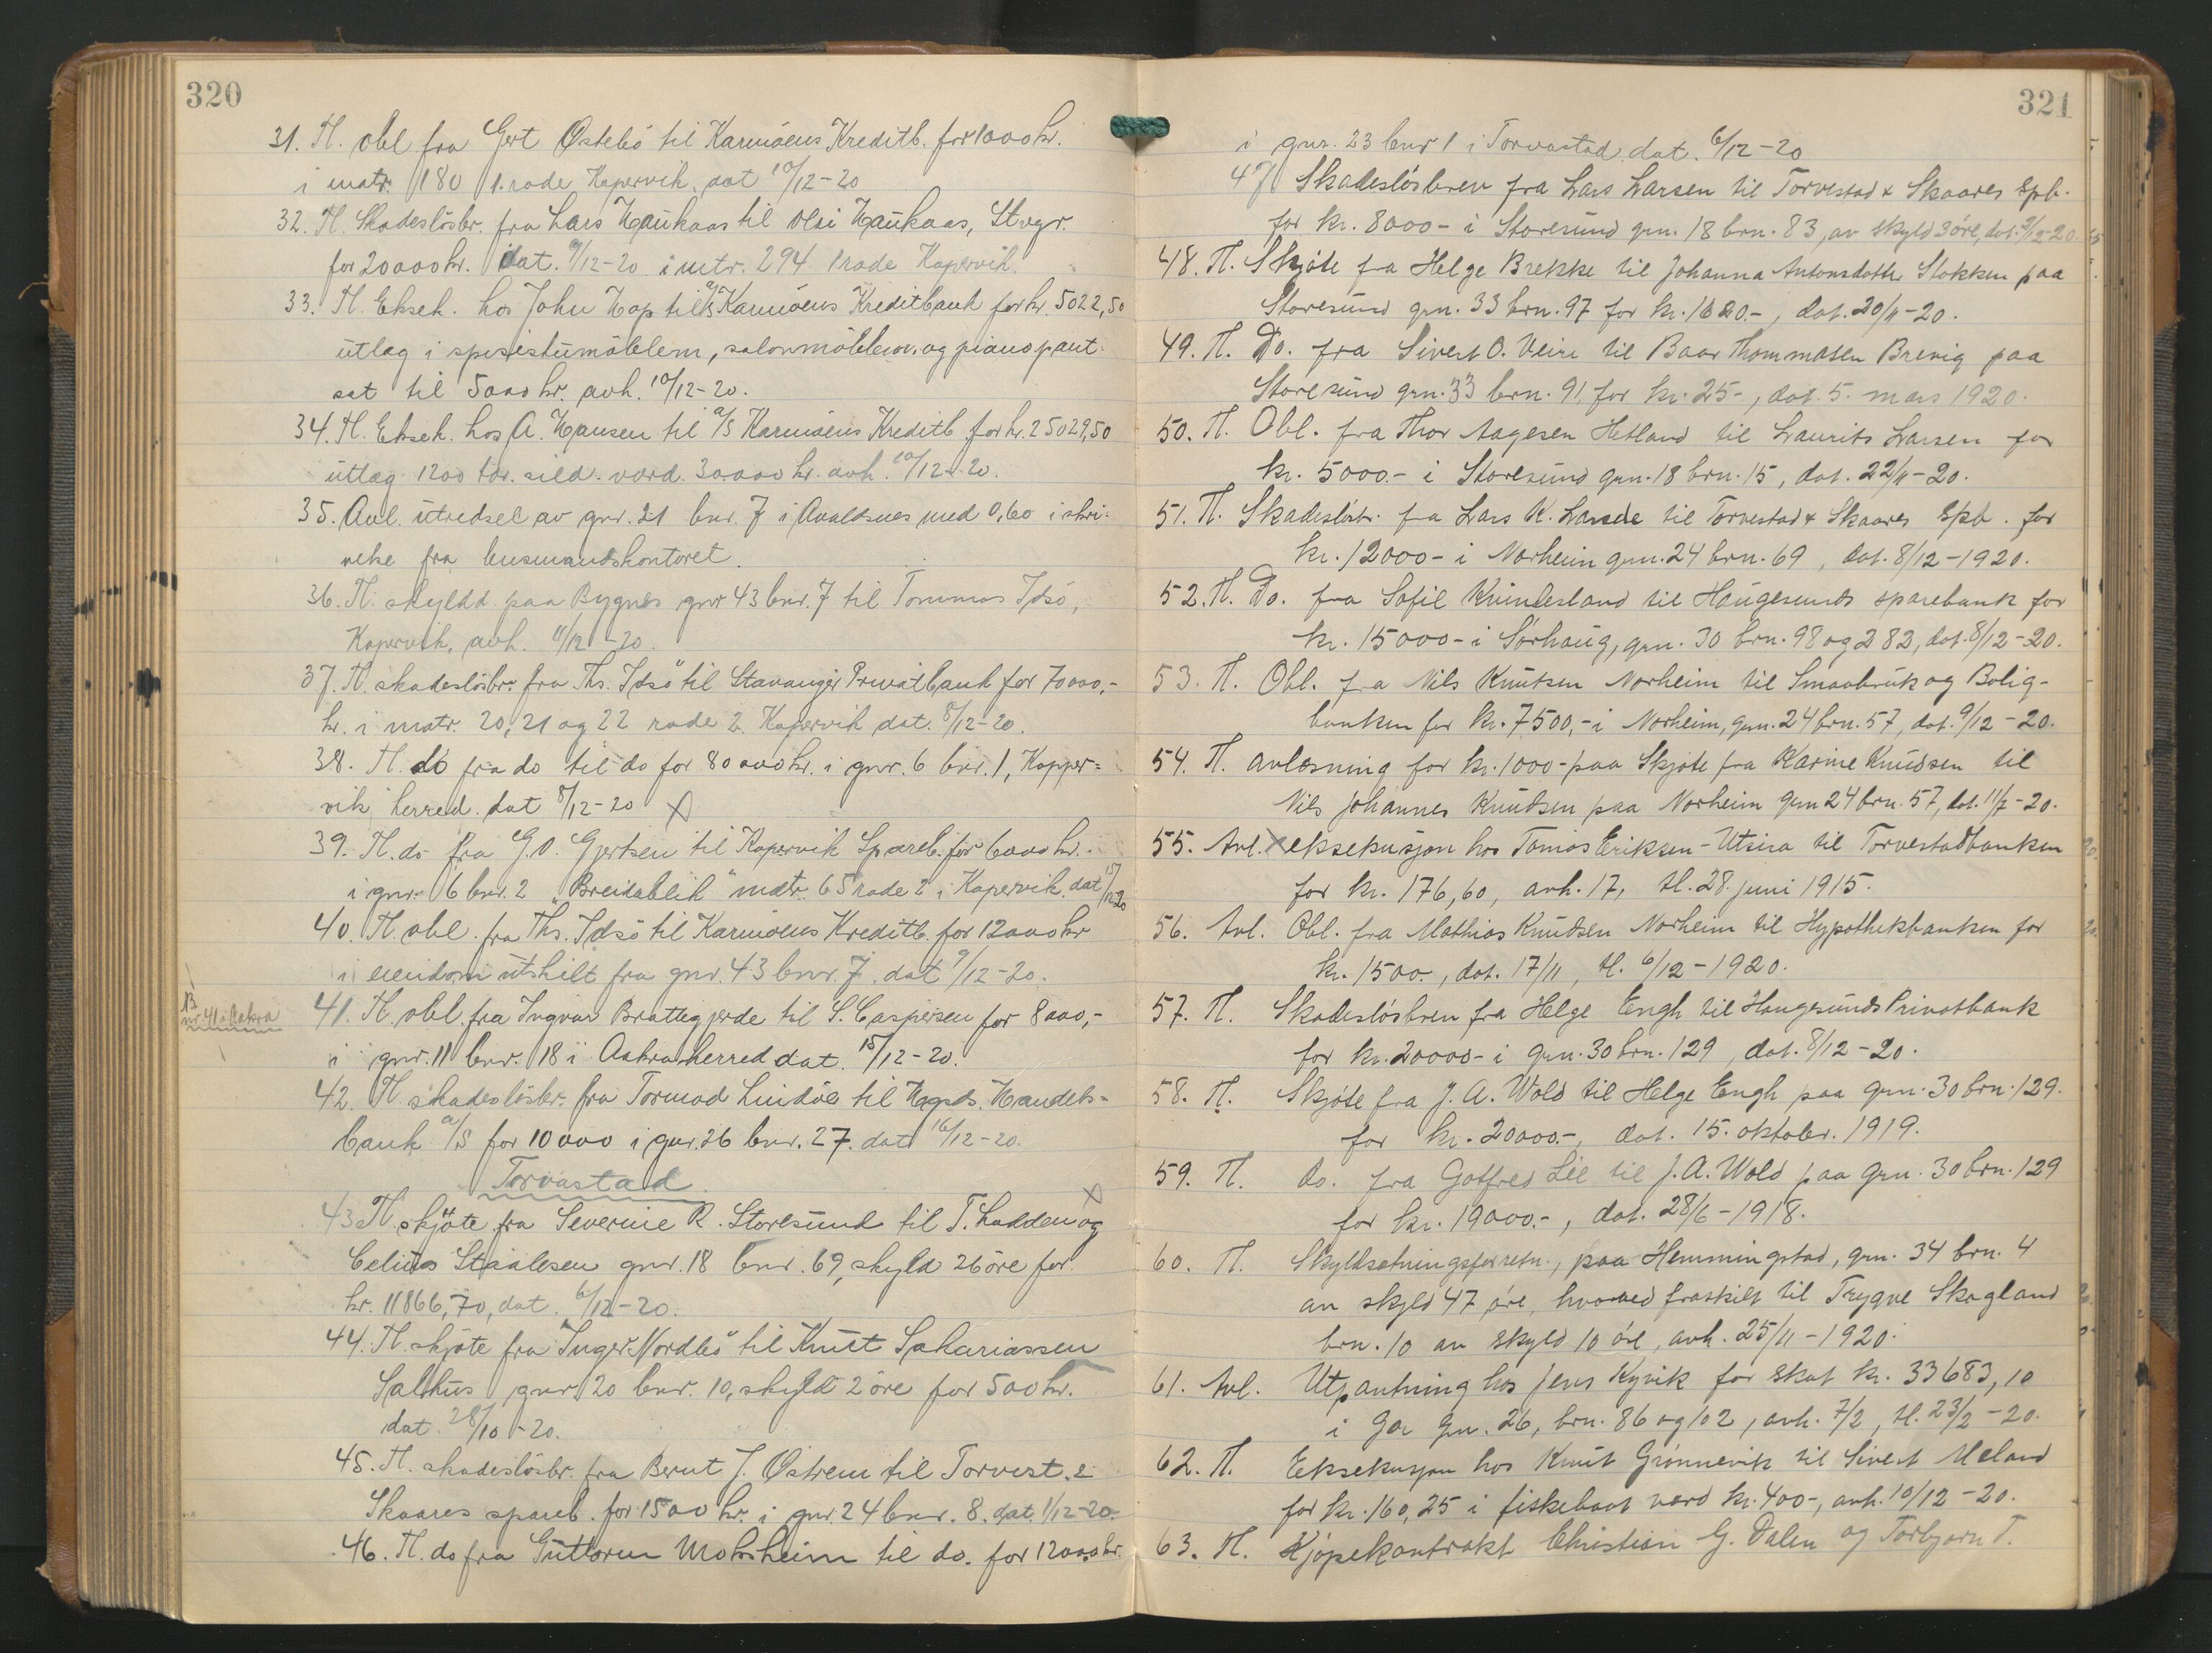 320
31. Tl. obl. fra Gert Østebö til Karmöens Kreditb. for 1000 kr.
i matr. 180 1. rode Kopervik. dat 10/12-20
32. Tl. Skadeslösbr. fra Lars Haukaas til Olei Haukaas, Stvgr.
for 20000 kr. dat. 9/12-20 i mtr. 294 1 rode Kopervik.
33. Tl. Eksek. hos John Hop til A/S Karmöens Kreditbank for kr. 5022,50
utlæg i spisestumöblem, salonmöblem. og piano pant-
sat til 5000 kr. avh. 10/12-20.
34. Tl. Eksek. hos A. Hansen til A/S Karmöens Kreditb. for kr. 25029,50
utlæg 1200 tdr. sild. værd. 30.000 kr. avh. 10/12-20.
35. Avl. utredsel av gnr. 21 bnr. 7 i Avaldsnes med 0,60 i skri-
velse fra lensmandskontoret.
36. Tl. skyldd. paa Bygnes gnr 43 bnr. 7 til Tommas Idsö,
Kopervik, avh. 11/12-20.
37. Tl. skadeslösbr. fra Ths. Idsö til Stavanger Privatbank for 70000,-
kr. i matr. 20, 21 og 22 rode 2. Kopervik dat. 8/12-20.
38. Tl. do fra do til do for 80000 kr. i gnr. 6 bnr. 1, Kopper-
vik herred. dat 8/12-20 X
39. Tl. do fra G. O. Gjertsen til Kopervik Spareb. for 6000 kr.
i gnr. 6 bnr. 2 "Breidablik" matr. 65 rode 2 i Kopervik. dat 15/12-20
40. Tl. obl. fra Ths. Idsö til Karmöens Kreditb. for 12000 kr
i eiendom utskilt fra gnr. 43 bnr. 7. dat 9/12-20.
nr. 41 i Aakra
41. Tl. obl. fra Ingvar Brattegjerde til S. Caspersen for 8000,-
i gnr. 11 bnr. 18 i Aakra herred dat. 15/12-20.
42. Tl. skadeslösbr. fra Tormod Lindöe til Hgsds. Handels-
bank A/S for 10000 i gnr. 26 bnr. 27. dat 16/12-20.
Torvastad
43 Tl. skjöte fra Severine R. Storesund til T. Lodden og X
Celius Staalesen gnr. 18 bnr. 69, skyld 26 öre for
kr. 11866,70, dat. 6/12-20.
44. Tl. skjöte fra Inger Nordbö til Knut Sakariassen
Salhus gnr. 20 bnr. 10, skyld 2 öre for 500 kr.
dat. 28/10-20.
45. Tl. skadeslösbr. fra Bernt J. Østrem til Torvest. &
Skaares spareb. for 1500 kr. i gnr. 24 bnr. 8. dat. 1/12-20.
46. Tl. do fra Guttorm Moksheim til do. for 12000 kr.
321
i gnr. 23 bnr 1 i Torvastad dat. 6/12-20
47 Skadeslösbrev fra Lars Larsen til Torvestad & Skaares Spb.
for kr. 8000- i Storesund grn. 18 brn. 83, av skyld 3 öre, dat. 9/12-20.
48. Tl. Skjöte fra Helge Brekke til Johanna Antonsdatter Stokken paa
Storesund grn. 33 brn. 97 for kr. 1620.-, dat. 20/11-20.
49. Tl. Do. fra Sivert O. Veire til Baar Thommasen Brevig paa
Storesund grn. 33 brn. 91, for kr. 25-, dat. 5. mars 1920.
50. Tl. Obl. fra Thor Aagesen Hetland til Laurits Larsen for
kr. 5000.- i Storesund grn. 18 brn. 15, dat. 22/11-20.
51. Tl. Skadeslösbr. fra Lars K. Larsde til Torvestad & Skaares Spb. for
kr. 12000- i Norheim grn. 24 brn. 69, dat. 8/12-1920.
52. Tl. Do. fra Sofil Kvindesland til Haugesunds sparebank for
kr. 15000- i Sørhaug, grn. 30 brn. 98 og 282, dat. 8/12-20.
53. Tl. Obl. fra Nils Knutsen Norheim til Smaabruk og Bolig-
banken for kr. 7500,- i Norheim, grn. 24 brn. 57, dat. 9/12-20.
54. Tl. avløsning for kr. 1000- paa Skjøte fra Karine Knudsen til
Nils Johannes Knudsen paa Norheim grn 24 brn. 57, dat. 11/7-20.
55. Avl. X eksekusjon hos Tomas Eriksen-Utsira til Torvestadbanken
for kr. 176,60, avh. 17, tl. 28. juni 1915.
56. Avl. Obl. fra Mathias Knudsen Norheim til Hypothekbanken for
kr. 1500.-, dat. 17/11, tl. 6/12-1920.
57. Tl. Skadesløsbrev fra Helge Engh til Haugesunds Privatbank
for kr. 20000- i grn. 30 brn. 129, dat. 8/12-20.
58. Tl. Skjøte fra J. A. Wold til Helge Engh paa grn. 30 brn. 129.
for kr. 20000.-, dat. 15. oktober. 1919.
59. Tl. do. fra Gotfred Lie til J. A. Wold paa grn. 30 brn. 129
for kr. 19000.-, dat. 28/6-1918.
60. Tl. Skyldsetningsforretn., paa Hemmingstad, grn. 34 brn. 4
av skyld 47 øre, hvorved fraskilt til Trygve Skogland
brn. 10 av skyld 10 øre, avh. 25/11-1920.
61. Avl. Utpantning hos Jens Kyvik for skat kr. 33683,10
i Gar grn. 26, brn. 86 og 102, avh. 7/2, tl. 23/2-20.
62. Tl. Eksekusjon hos Knut Grønnevik til Sivert Meland
for kr. 160,25 i fiskebaat værd kr. 400-, avh. 10/12-20.
63. Tl. Kjøpekontrakt Christian G. Dalen og Torbjørn T.